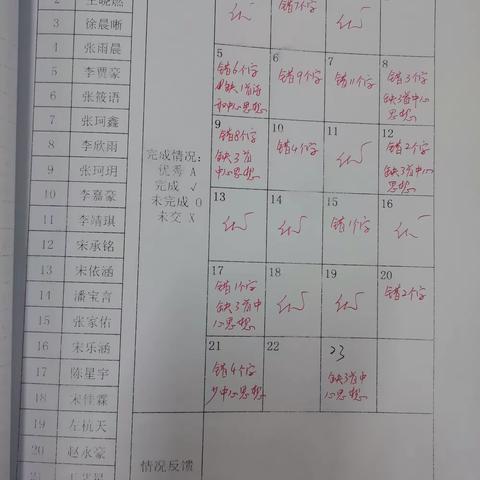 2
3 徐晨晰
4 张雨晨
5 李贾豪
6 张筱语
7 张珂鑫
8 李欣雨
9 张珂玥
10 李嘉豪
11 李靖琪
12 宋承铭
13 宋依涵
14 潘宝言
15 张家佑
16 宋乐涵
17 陈星宇
18 宋佳霖
19 左杭天
20 赵永豪
21
完成情况:
优秀 A
完成 √
未完成 O
未交 X
情况反馈
错7个字
5
错6个字
缺1首诗
和中心思想
6
错9个字
7
错11个字
8
错3个字
缺3首中心
思想
9
错8个字
缺3首
中心思想
10
错4个字
11
12
错2个字
缺3首中
心思想
13
14
15
错1个字
16
17
错1个字
缺3首中
心思想
18
19
20
错2个字
21
错4个字
少中心思想
22
23
缺3首中
心思想